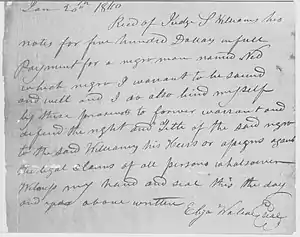 Jan 20th 1840
Recd of Judge S Williams his
notes for five hundred Dollars in full
Payment for a negro man named Ned
which negro I warrant to be sound
and well and I do also bind myself
by these presents to forever warrant and
defend the right and Title of the said negro
to the said Williams his Heirs or assigns against
the legal Claims of all persons whatsoever
Witness my hand and seal this the day
and year above written
Eliza Wallace Seal